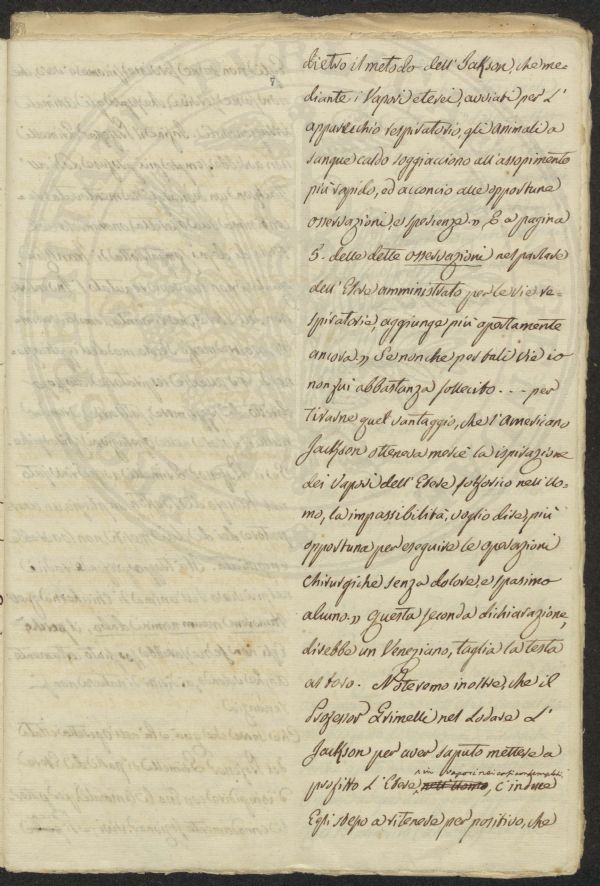 7
dietro il metodo dell'Jakson, che me-
diante i Vapori eterei, avviati per l'
apparecchio respiratorio, gli animali a
sangue caldo soggiacciono all'assopimento
più rapido, ed acconcio alle opportune
osservazioni, e sperienze » E a pagina
5. delle dette osservazioni nel parlare
dell'Etere amministrato per le vie re-
spiratorie, aggiunge più apertamente
ancora » Se non che per tali vie io
non fui abbastanza sollecito . . . per
tirarne quel vantaggio, che l'Americano
Jackson otteneva mercè la ispirazione
dei Vapori dell'Etere solforico nell'Uo-
mo, la impassibilità, voglio dire, più
opportuna per eseguire le operazioni
chirurgiche senza dolore, e spasimo
alcuno » questa seconda dichiarazione,
direbbe un Veneziano, taglia la testa
al toro. Noteremo inoltre, che il
Professor Grimelli nel lodare l'
Jackson per aver saputo mettere a
in vapori nei casi contemplati
profitto l'Etere nell'Uomo, c'induce
Egli stesso a ritenere per positivo, che